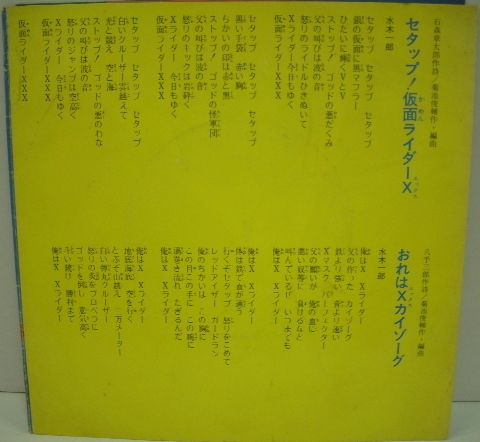 石森章太郎作詩／菊池俊輔作・編曲
セタップ！仮面ライダーX
水木一郎
セタップ　セタップ　セタップ
銀の仮面に黒マフラー
ひたいに輝くVとV
ストップ！ゴッドの悪だくみ
父の叫びは波の音
怒りのライドルひきぬいて
Xライダー　今日もゆく
仮面ライダーXXX
セタップ　セタップ　セタップ
黒い手袋　赤い胸
ちかいの印は赤と黒
ストップ！ゴッドの怪軍団
父の叫びは波の音
怒りのキックは岩砕く
Xライダー　今日もゆく
仮面ライダーXXX
セタップ　セタップ　セタップ
白いクルーザー雲越えて
光と競え　空と海
ストップ！ゴッドの悪のわな
父の叫びは波の音
怒りのジャンプは空砕く
Xライダー　今日もゆく
仮面ライダーXXX
八手三郎作詩／菊池俊輔作・編曲
おれはXカイゾーグ
水木一郎
俺はX　Xライダー
父の作ったカイゾーグ
鉄より強い　音より速い
Xマスク　パーフェクター
父の願いが　俺の血に
悪い奴等に　負けるなと
叫んでいるぜ　いつまでも
俺はX　Xライダー
俺はX　Xライダー
体は鉄で血が通う
行くぞセタップ　怒りをこめて
レッドアイザー　ガードラン
俺のちかいは　この胸に
この日この手に　この腕に
渦巻き流れ　たぎるんだ
俺はX　Xライダー
俺はX　Xライダー
地面海底　空を行く
とぶぞ山越え　二万メーター
白い弾丸クルーザー
怒りの炎をプロペラに
ゴッドを倒し　意気高く
走り続け　勝利まで
俺はX　Xライダー